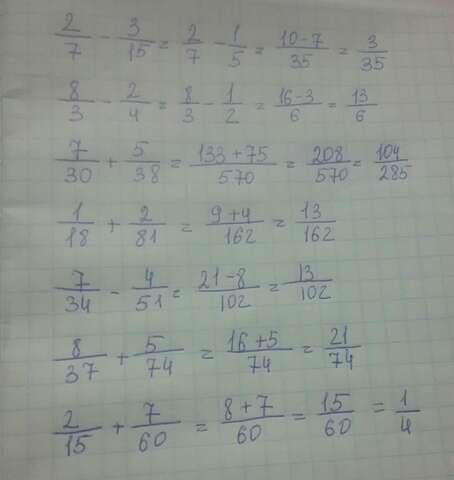 2/7 - 3/15 = 2/7 - 1/5 = 10-7/35 = 3/35
8/3 - 2/4 = 8/3 - 1/2 = 16-3/6 = 13/6
7/30 + 5/38 = 133+75/570 = 208/570 = 104/285
1/18 + 2/81 = 9+4/162 = 13/162
7/34 - 4/51 = 21-8/102 = 13/102
8/37 + 5/74 = 16+5/74 = 21/74
2/15 + 7/60 = 8+7/60 = 15/60 = 1/4